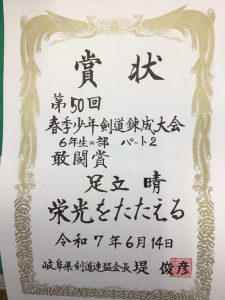 賞状
第50回
春季少年剣道錬成大会
6年生の部 パート2
敢闘賞
足立 晴
栄光をたたえる
令和7年6月14日
岐阜県剣道連盟会長 堤 俊彦